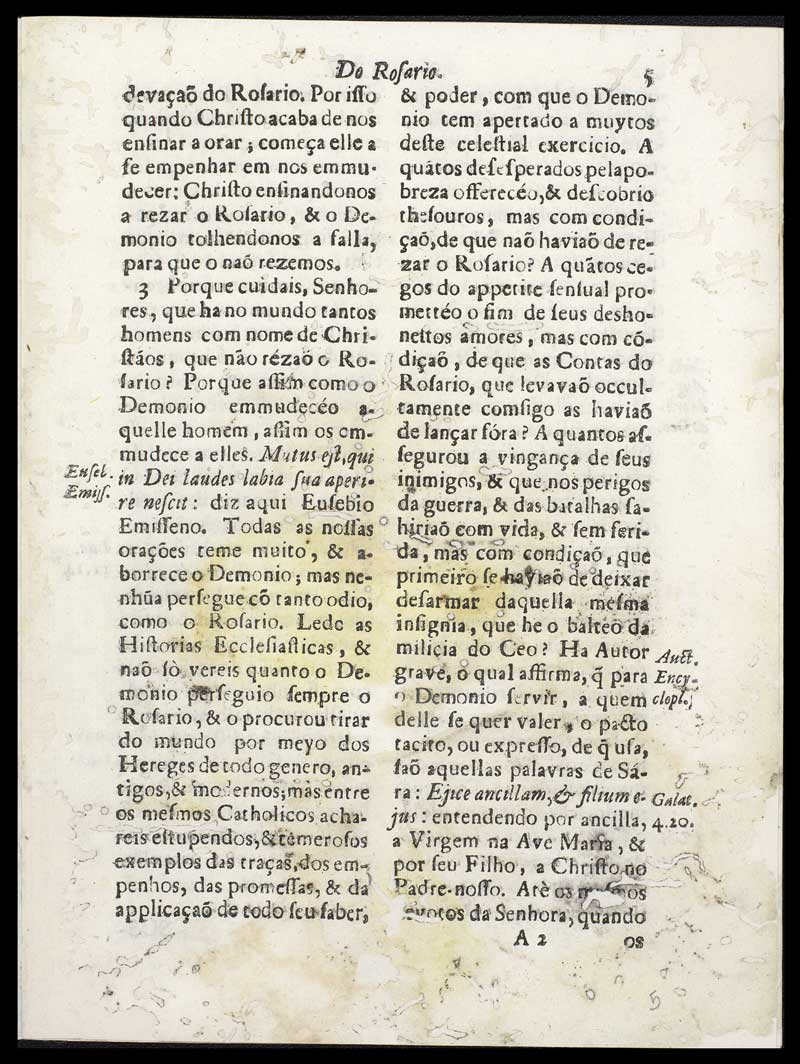 Do Roſario. 5
devaçaõ do Roſario. Por iſſo
quando Chriſto acaba de nos
enſinar a orar; começa elle a
ſe empenhar em nos emmu-
decer: Chriſto enſinandonos
a rezar o Roſario, & o De-
monio tolhendonos a falla,
para que o naõ rezemos.
3 Porque cuidais, Senho-
res, que ha no mundo tantos
homens com nome de Chri-
ſtãos, que não rézaõ o Ro-
ſario? Porque aſſim como o
Demonio emmudecéo a-
quelle homem, aſſim os em-
mudece a elles. Mutus eſt, qui
in Dei laudes labia ſua aperi-
re neſcit: diz aqui Euſebio
Emiſſeno. Todas as noſſas
orações teme muito, & a-
borrece o Demonio; mas ne-
nhũa perſegue cõ tanto odio,
como o Roſario. Lede as
Hiſtorias Eccleſiaſticas, &
naõ ſò vereis quanto o De-
monio perſeguio ſempre o
Roſario, & o procurou tirar
do mundo por meyo dos
Hereges de todo genero, an-
tigos, & modernos; mas entre
os meſmos Catholicos acha-
reis eſtupendos, & temeroſos
exemplos das traças, dos em-
penhos, das promeſſas, & da
applicaçaõ de todo ſeu ſaber,
Euſeb.
Emiſſ.
& poder, com que o Demo-
nio tem apertado a muytos
deſte celeſtial exercicio. A
quãtos deſeſperados pela po-
breza offerecéo, & deſcobrio
theſouros, mas com condi-
çaõ, de que naõ haviaõ de re-
zar o Roſario? A quãtos ce-
gos do appetite ſenſual pro-
mettéo o fim de ſeus desho-
neſtos amores, mas com cõ-
diçaõ, de que as Contas do
Roſario, que levavaõ occul-
tamente comſigo as haviaõ
de lançar fóra? A quantos aſ-
ſegurou a vingança de ſeus
inimigos, & que nos perigos
da guerra, & das batalhas ſa-
hiriaõ com vida, & ſem feri-
da, mas com condiçaõ, que
primeiro ſe haviaõ de deixar
deſarmar daquella meſma
inſignia, que he o balteo da
milicia do Ceo? Ha Autor
grave, o qual affirma, q̃ para
o Demonio ſervir, a quem
delle ſe quer valer, o pacto
tacito, ou expreſſo, de q̃ uſa,
ſaõ aquellas palavras de Sá-
ra: Ejice ancillam, & filium e-
jus: entendendo por ancilla,
a Virgem na Ave Maria, &
por ſeu Filho, a Chriſto no
Padre noſſo. Atè os
da Senhora, quando
Auct.
Ency-
clopl.
Galat.
4.20.
A 2 os